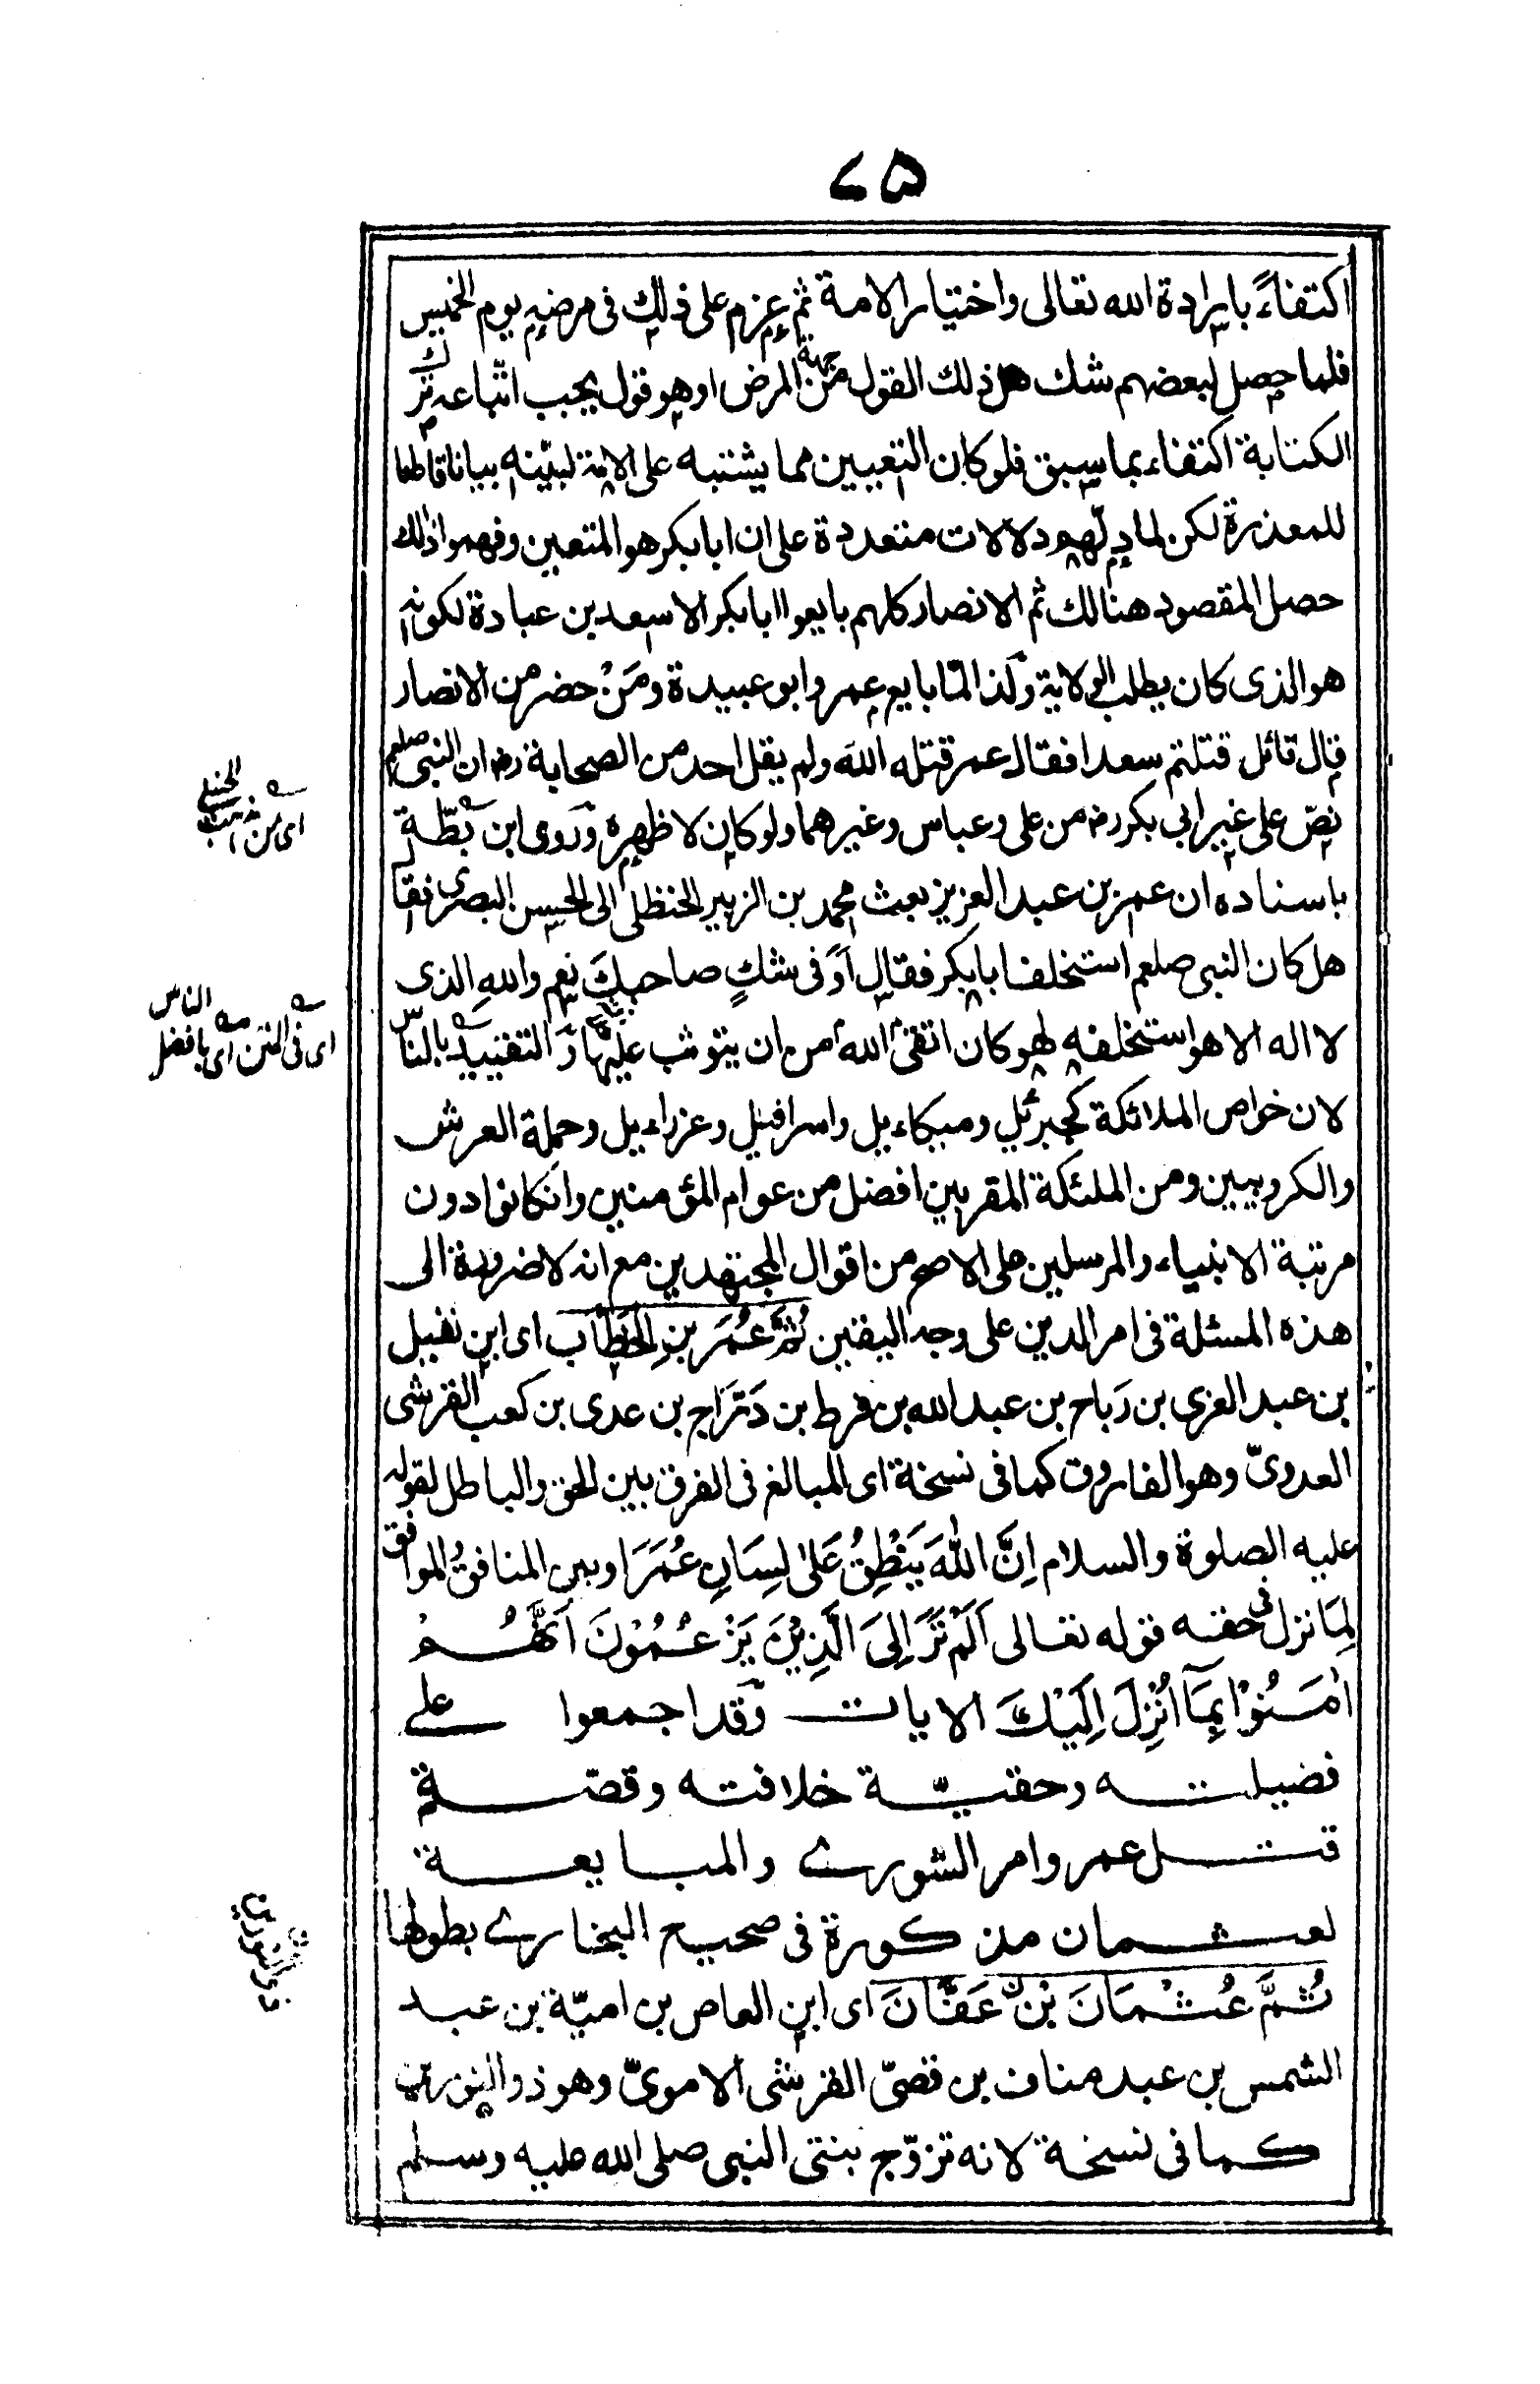 ٧٥
اكتفاءً بارادة الله تعالى واختيار الامة ثم عزم على ذلك فى مرضه يوم الخميس
فلما حصل لبعضهم شك هل ذلك القول من جهة المرض او هو قول يجب اتباعه ترك
الكتابة اكتفاء بما سبق فلو كان التعيين مما يشتبه على الامة لبيّنه بيانا قاطعا
للمعذرة لكن لما دلّهم دلالات متعددة على ان ابا بكر هو المتعين وفهموا ذلك
حصل المقصود هنالك ثم الانصار كلهم بايعوا ابا بكر الا سعد بن عبادة لكونه
هو الذى كان يطلب الولاية وَلذا لمّا بايع عمر وابو عبيدة ومَنْ حضر من الانصار
قال قائل قتلتم سعدا فقال عمر قتله اللهَ ولم يقل احد من الصحابة رض ان النبى صلعم
نصّ على غير ابى بكر رض من على وعباس وغيرهما ولو كان لاظهره وَروى ابن بطّة
باسناده ان عمر بن عبد العزيز بعث محمد بن الزبير الحنظلى الى الحسن البصرى فقال
هل كان النبى صلعم استخلف ابا بكر فقال اَوَفى شكٍ صاحبكَ نعم واللهِ الذى
لا اله الا هو استخلفه لهو كان اتقى الله من ان يتوثب عليها وَالتقييد بالناس
لان خواص الملائكة كجبرئيل وميكاءيل واسرافيل وعزراءيل وحملة العرش
والكروبيين ومن الملئكة المقربين افضل من عوام المؤمنين وان كانوا دون
مرتبة الانبياء والمرسلين على الاصح من اقوال المجتهدين مع انه لا ضرورة الى
هذه المسئلة فى امر الدين على وجه اليقين ثُمَّ عُمَر بنِ الخَطَّاب اى ابن نفيل
بن عبد العزى بن رَباح بن عبد الله بن قرط بن دَرَزاج بن عدى بن كعب القرشى
العدوىّ وهو الفاروق كما فى نسخة اى المبالغ فى الفرق بين الحق والباطل لقوله
عليه الصلوة والسلام اِنَّ اللهَ يَنْطِقُ عَلىٰ لِسَانِ عُمَرَ او بين المنافق والموافق
لِمَا نزل فى حقه قوله تعالى اَلَمْ تَرَ اِلىَ الَّذِيْنَ يَزْعُمُوْنَ اَنَّهُمْ
اٰمَنُوْا بِمَآ اُنْزِلَ اِلَيْكَ الايات وَقد اجمعوا على
فضيلته وحقيّة خلافته وقصّة
قتل عمر وامر الشورى والمبايعة
لعثمان مذكورة فى صحيح البخارى بطولها
ثُمَّ عُثْمَانَ بْنَ عَفَّانَ اى ابن العاص بن اميّة بن عبد
الشمس بن عبد مناف بن قصىّ القرشى الاموىّ وهو ذو النورين
كما فى نسخة لانه تزوّج بنتى النبى صلى الله عليه وسلم
اى من مذهب الحنبلى
اى فى المتن اى بافضل الناس
ذى النورين